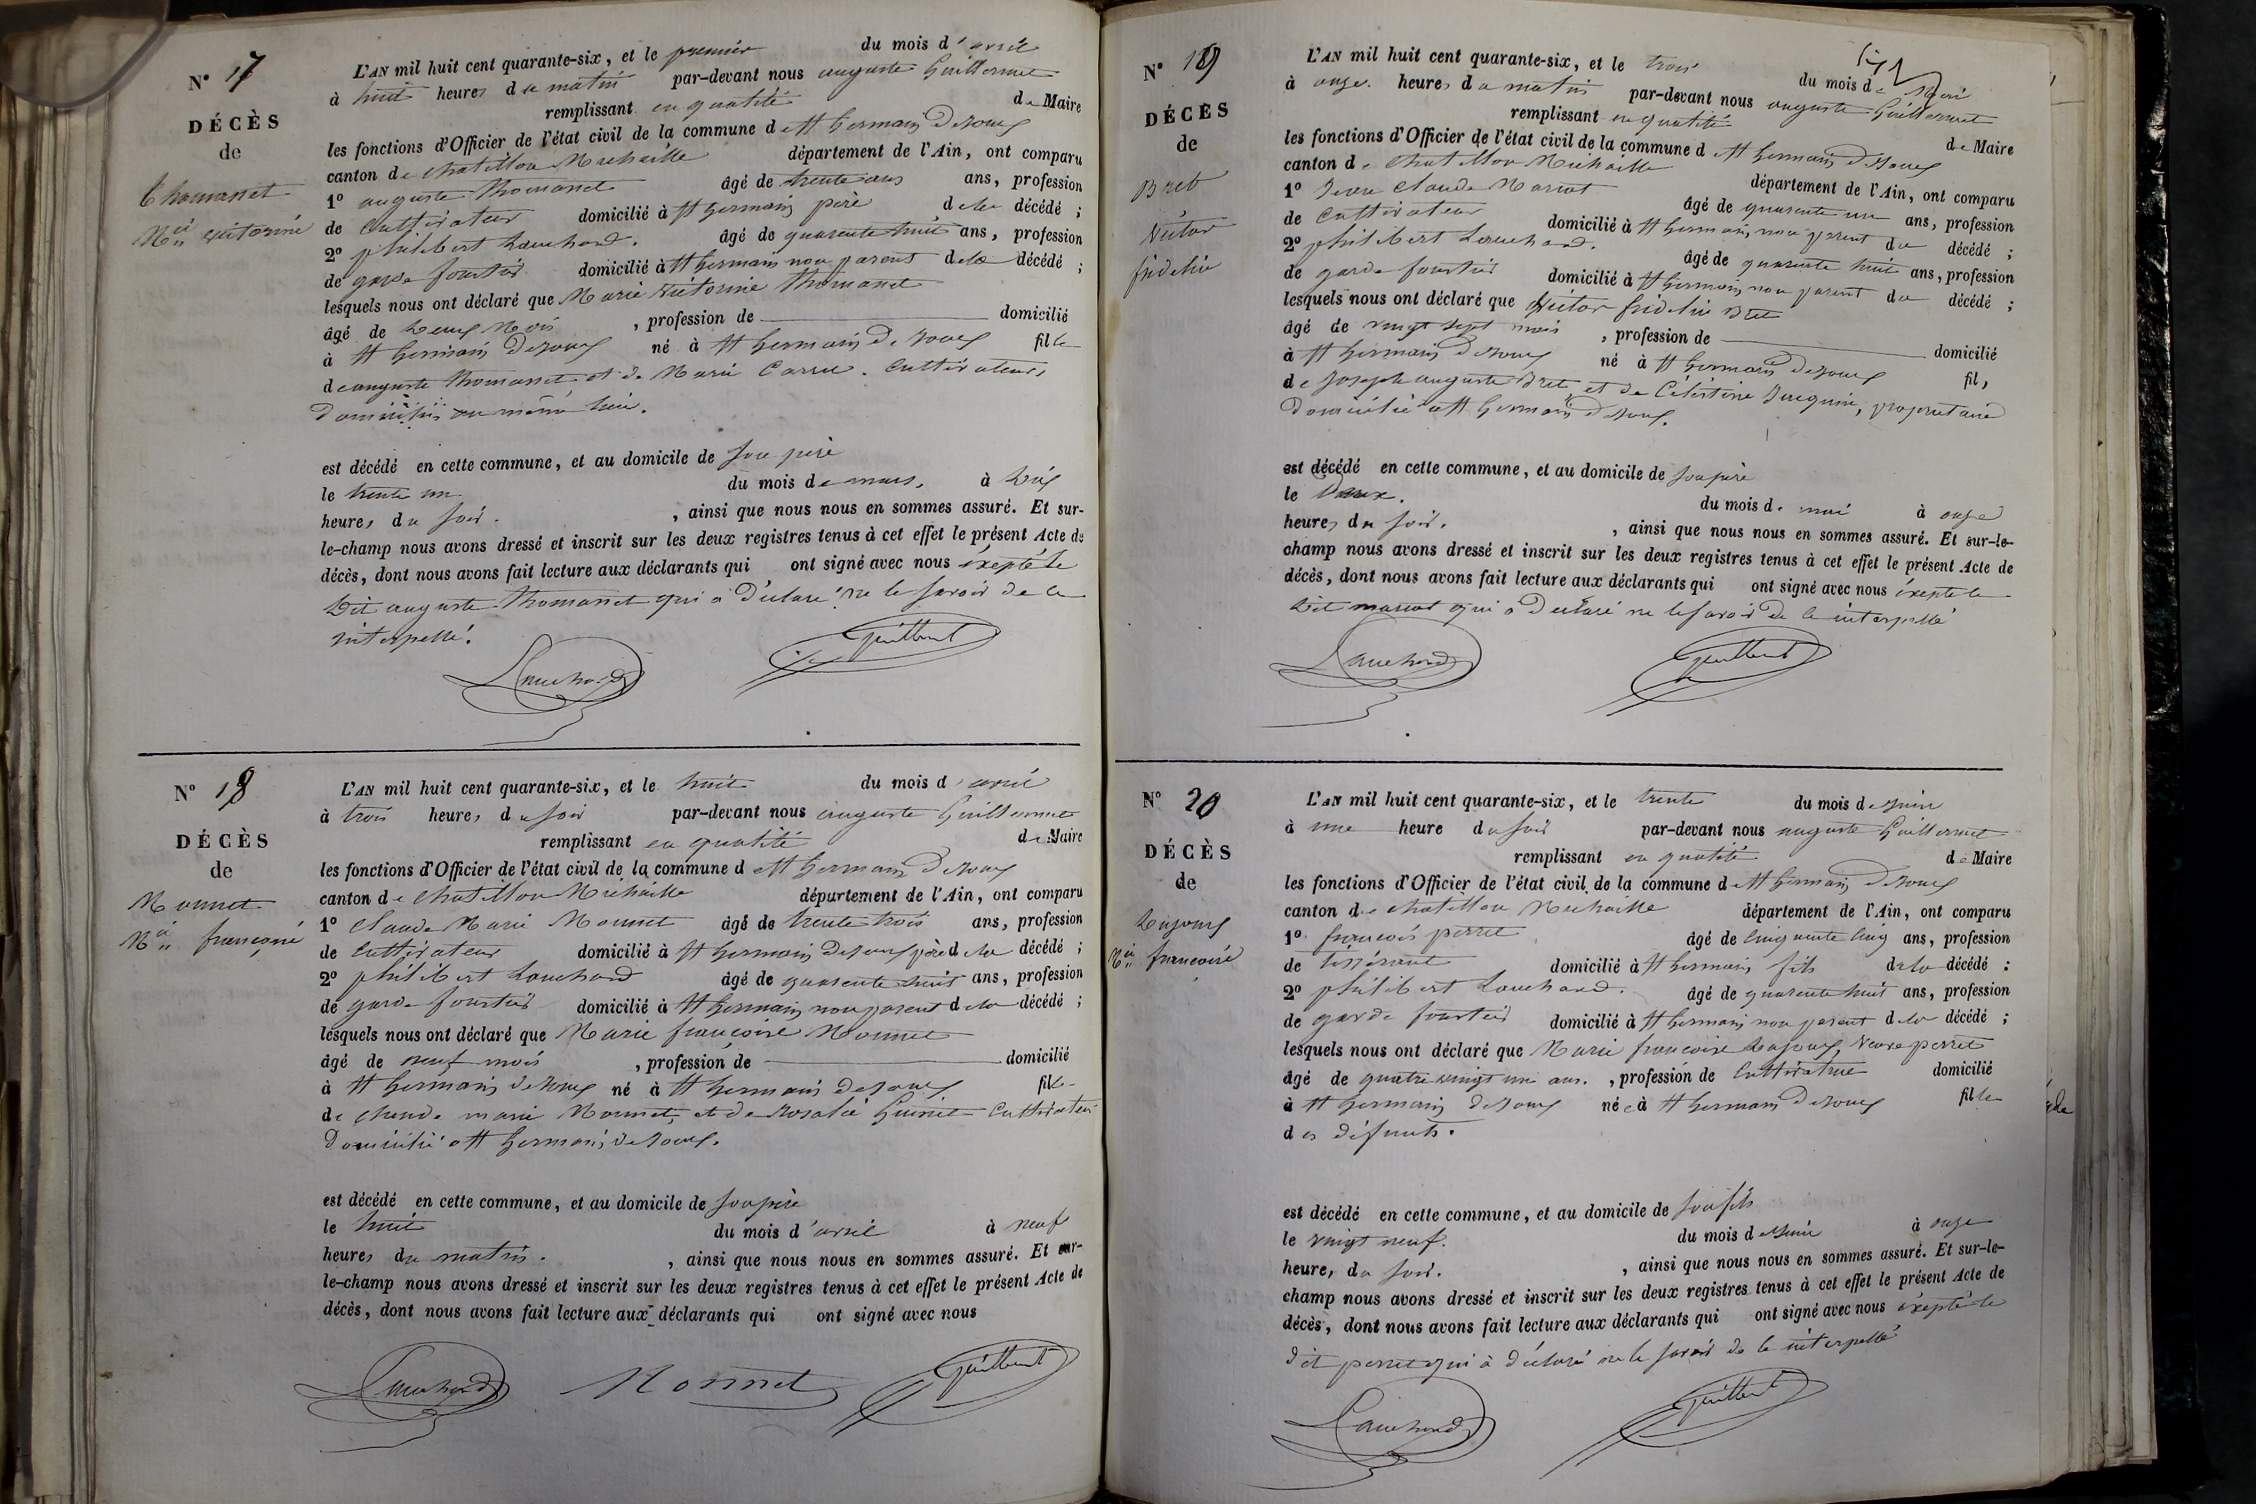 N° 17
DÉCÈS
de
Thomasset
Mie Victorine
L'AN mil huit cent quarante-six, et le premier du mois d'avril
à huit heures du matin par-devant nous auguste Guillermet
remplissant en qualité de Maire
les fonctions d'Officier de l'état civil de la commune de St Germain de Joux
canton de Chatillon Michaille département de l'Ain, ont comparu
1° auguste Thomasset âgé de trente ans ans, profession
de Cultivateur domicilié à St Germain père de la décédé ;
2° philibert Louchard. âgé de quarante huit ans, profession
de garde forestier domicilié à St Germain non parent de la décédé ;
lesquels nous ont déclaré que Marie Victorine Thomasset
âgé de Deux Mois , profession de domicilié
à St Germain de Joux né à St Germain de Joux fille
de auguste Thomasset et de Marie Carre. Cultivateurs
Domiciliés au même lieu.
est décédé en cette commune, et au domicile de son père
le trente un du mois de mars, à Dix
heures du soir. , ainsi que nous nous en sommes assuré. Et sur-
le-champ nous avons dressé et inscrit sur les deux registres tenus à cet effet le présent Acte de
décès, dont nous avons fait lecture aux déclarants qui ont signé avec nous éxepté le
Dit auguste Thomasset qui a Déclaré ne le savoir de ce
interpellé.
Louchard Guillermet
N° 18
DÉCÈS
de
Monnet
Mie françoise
L'AN mil huit cent quarante-six, et le huit du mois d'avril
à trois heures du soir par-devant nous auguste Guillermet
remplissant en qualité de Maire
les fonctions d'Officier de l'état civil de la commune de St Germain de Joux
canton de Chatillon Michaille département de l'Ain, ont comparu
1° Claude Marie Monnet âgé de trente trois ans, profession
de Cultivateur domicilié à St Germain de Joux père de la décédé ;
2° philibert Louchard âgé de quarante huit ans, profession
de garde forestier domicilié à St Germain non parent de la décédé ;
lesquels nous ont déclaré que Marie françoise Monnet
âgé de neuf mois , profession de domicilié
à St Germain de Joux né à St Germain de Joux fille
de Claude marie Monnet, et de Rosalie Guinet Cultivateur
Domicilié a St Germain de Joux.
est décédé en cette commune, et au domicile de son père
le huit du mois d'avril à neuf
heures du matin. , ainsi que nous nous en sommes assuré. Et sur-
le-champ nous avons dressé et inscrit sur les deux registres tenus à cet effet le présent Acte de
décès, dont nous avons fait lecture aux déclarants qui ont signé avec nous
Louchard Monnet Guillermet
N° 19
DÉCÈS
de
Bret
Victor
fidelin
L'AN mil huit cent quarante-six, et le trois du mois de Mai
à onze heures du matin par-devant nous auguste Guillermet
remplissant en qualité de Maire
les fonctions d'Officier de l'état civil de la commune de St Germain de Joux
canton de Chatillon Michaille département de l'Ain, ont comparu
1° Jean Claude Marcot âgé de quarante un ans, profession
de Cultivateur domicilié à St Germain, non parent du décédé ;
2° philibert Louchard. âgé de quarante huit ans, profession
de garde forestier domicilié à St Germain non parent du décédé ;
lesquels nous ont déclaré que Victor fidelin Bret
âgé de vingt sept mois , profession de domicilié
à St Germain de Joux né à St Germain de Joux fils
de Joseph auguste Bret, et de Célestine Juquin, propriétaire
Domicilié a St Germain de Joux.
est décédé en cette commune, et au domicile de son père
le Deux. du mois de mai à onze
heures du soir. , ainsi que nous nous en sommes assuré. Et sur-le-
champ nous avons dressé et inscrit sur les deux registres tenus à cet effet le présent Acte de
décès, dont nous avons fait lecture aux déclarants qui ont signé avec nous éxepté le
Dit marcot qui a Déclaré ne le savoir de ce interpellé
Louchard Guillermet
N° 20
DÉCÈS
de
Dujoux
Mie francoise
L'AN mil huit cent quarante-six, et le trente du mois de Juin
à une heure du soir par-devant nous auguste Guillermet
remplissant en qualité de Maire
les fonctions d'Officier de l'état civil de la commune de St Germain de Joux
canton de Chatillon Michaille département de l'Ain, ont comparu
1° francois perret âgé de cinquante cinq ans, profession
de tisserant domicilié à St Germain fils de la décédé ;
2° philibert Louchard. âgé de quarante huit ans, profession
de garde forestier domicilié à St Germain non parent de la décédé ;
lesquels nous ont déclaré que Marie francoise Dujoux, Veuve perret
âgé de quatre vingt un ans. , profession de Cultivatrice domicilié
à St Germain de Joux née à St Germain de Joux fille
des défunts.
est décédé en cette commune, et au domicile de son fils
le vingt neuf. du mois de Juin à onze
heures du soir. , ainsi que nous nous en sommes assuré. Et sur-le-
champ nous avons dressé et inscrit sur les deux registres tenus à cet effet le présent Acte de
décès, dont nous avons fait lecture aux déclarants qui ont signé avec nous éxepté le
dit perret qui à déclaré ne le savoir de ce interpellé
Louchard Guillermet